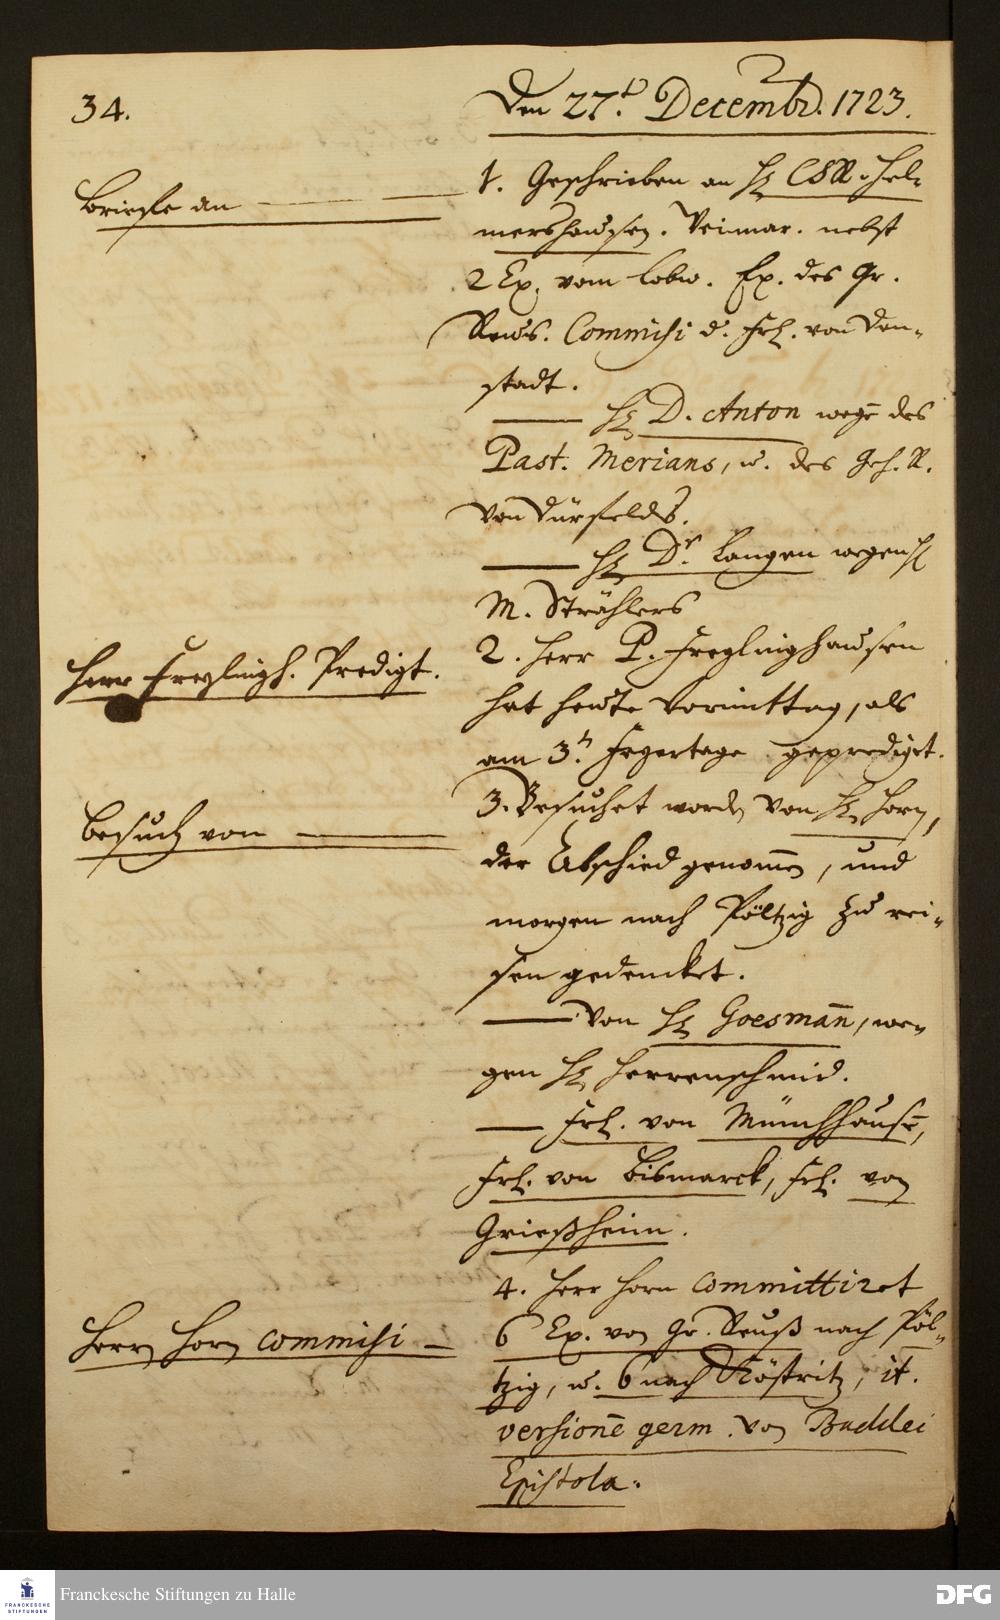 34.
Den 27.t Decembr. 1723.
Briefe an
1. Geschrieben an H. CSR. Hel-
mershausen. Veimar. nebst
2 Ex. vom lobw. Ex. des Gr.
Reuss. Commisi d. Frl. von Den-
stadt.
H. D. Anton wegē des
Past. Merians, u. des Geh. R.
von Dürfelds.
H. Dr. Langen wegen H
M. Strählers
Herr Freylingh. Predigt.
2. Herr P. Freylinghausen
hat heute Vormittag, als
am 3.n Feyertage geprediget.
Besuch von
3. Besucht worden von H. Horn,
der Abschied genom̄en, und
morgen nach Pöltzig zu rei-
sen gedencket.
Von H. Goesman̄, we-
gen H. Herrenschmid.
Frl. von Münchhausē,
Frl. von Bismarck, Frl. von
Grießheim.
4. Herr Horn committiret
Herrn Horn commisi
6 Ex. von Gr. Reuß nach Pöl-
tzig, u. 6 nach Köstritz, it.
versionē germ. von Buddei
Epistola.
Franckesche Stiftungen zu Halle
FRANCKESCHE
STIFTUNGEN
DFG